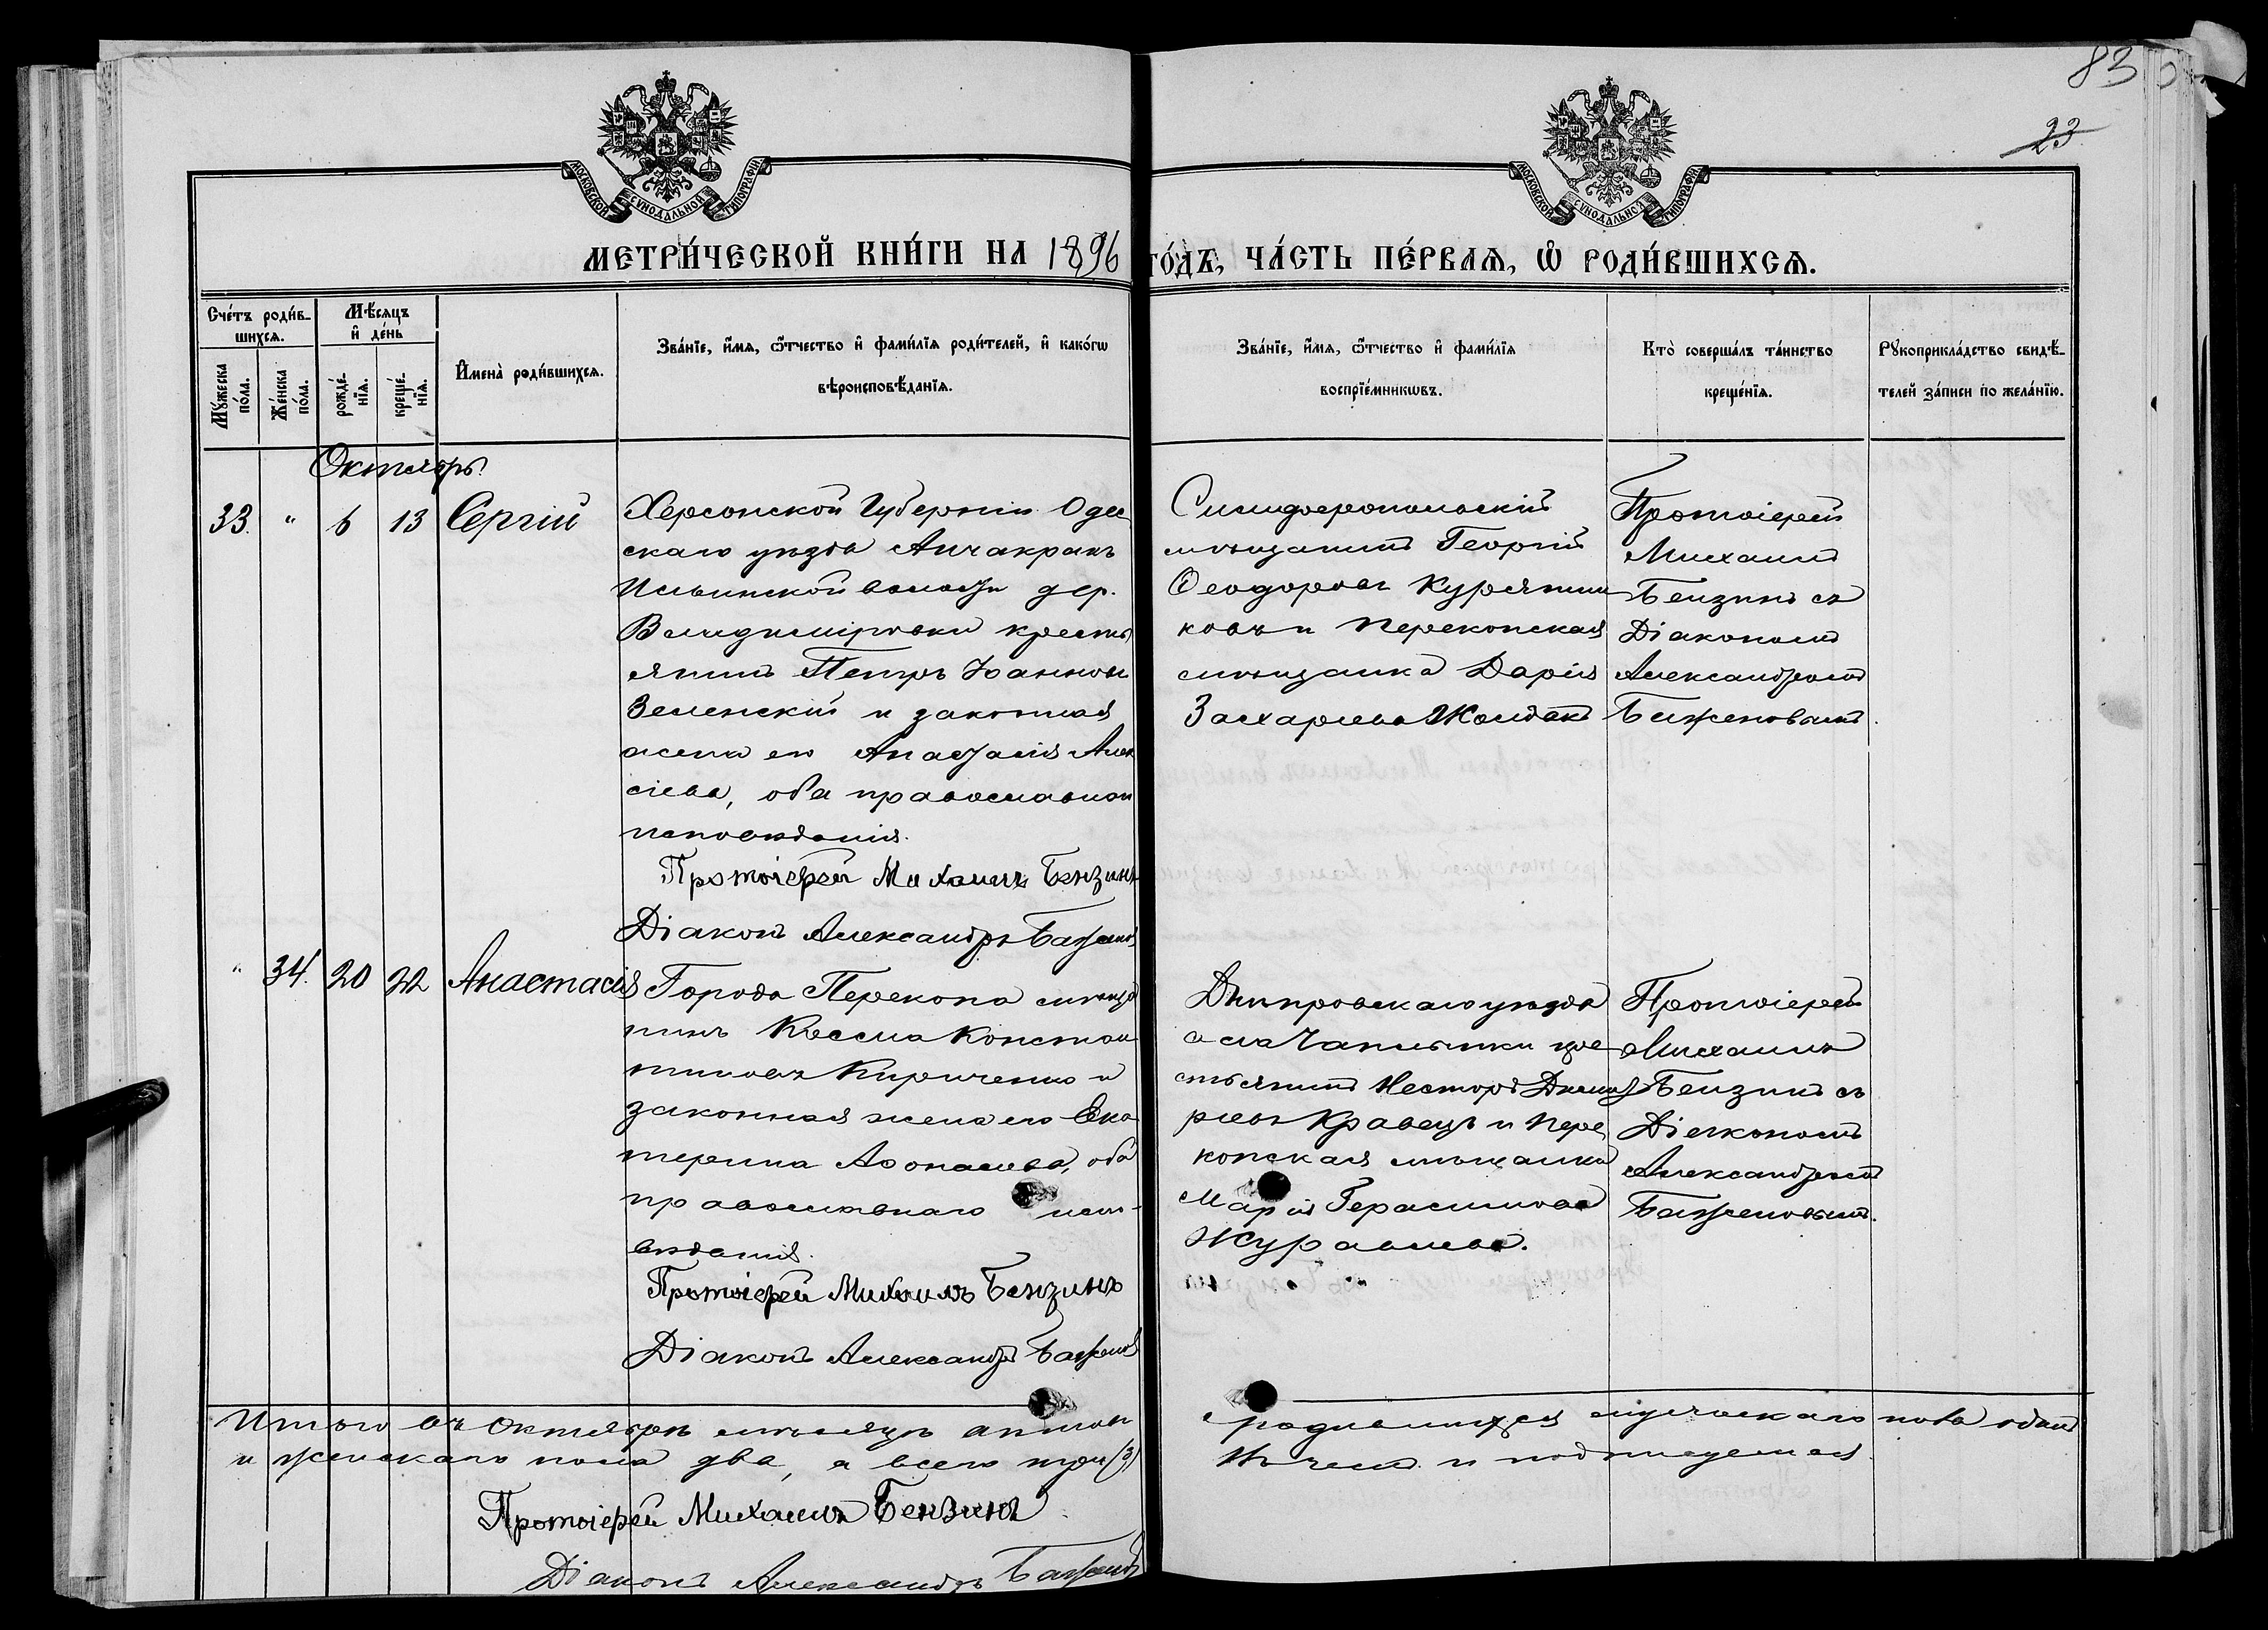 83
23
МОСКОВСКОЙ СѴНОДАЛЬНОЙ ТИПОГРАФІИ
МОСКОВСКОЙ СѴНОДАЛЬНОЙ ТИПОГРАФІИ
МЕТРИ́ЧЕСКОЙ КНИ́ГИ НА 1896 ГО́ДЪ, ЧА́СТЬ ПЕ́РВАѦ, Ѡ҆ РОДИ́ВШИХСѦ.
Сче́тъ роди́в-
шихсѧ.
Мꙋ́жеска
по́ла.
Же́нска
по́ла.
Мѣ́сѧцъ
и҆ де́нь
рожде́-
нїѧ.
креще́-
нїѧ.
И҆мена̀ роди́вшихсѧ.
Зва́нїе, и҆́мѧ, ѻ҆́тчество и҆ фами́лїѧ роди́телей, и҆ како́гѡ
вѣроисповѣ́данїѧ.
Зва́нїе, и҆́мѧ, ѻ҆́тчество и҆ фами́лїѧ
воспрїе́мникѡвъ.
Кто̀ соверша́лъ та́инство
креще́нїѧ.
Рꙋкоприкла́дство свидѣ́-
телей за́писи по жела́нїю.
Октябрь.
33. " 6 13 Сергій
Херсонской Губерніи Одес
скаго уѣзда Анчакракъ
Ильинской волости дер.
Владиміровки кресть
янинъ Петръ Іоанновъ
Зеленскій и законная
жена его Анастасія Алек
сіева, оба православнаго
исповѣданія.
Протоіерей Михаилъ Бензинъ
Діаконъ Александръ Баженовъ
Симферопольскій
мѣщанинъ Георгій
Ѳеодоровъ Курятни
ковъ и Перекопская
мѣщанка Дарія
Захаріева Жолдакъ
Протоіерей
Михаилъ
Бензинъ съ
Діакономъ
Александромъ
Баженовымъ.
" 34. 20 22 Анастасія
Города Перекопа мѣща
нинъ Косма Констан
тиновъ Кириченко и
законная жена его Ека
терина Аѳонасіева, оба
православнаго испо-
вѣданія.
Протоіерей Михаилъ Бензинъ
Діаконъ Александръ Баженовъ
Днѣпровскаго уѣзда
села Чаплынки кре
стьянинъ Несторъ Дмит
ріевъ Кравецъ и Пере
копская мѣщанка
Марія Герасимова
Журавлева.
Протоіерей
Михаилъ
Бензинъ съ
Діакономъ
Александромъ
Баженовымъ.
Итого въ Октябрѣ мѣсяцѣ родившихся мужескаго пола одинъ
и женскаго пола два, а всего три (3)
и подписуемся
Протоіерей Михаилъ Бензинъ
Діаконъ Александръ Баженовъ